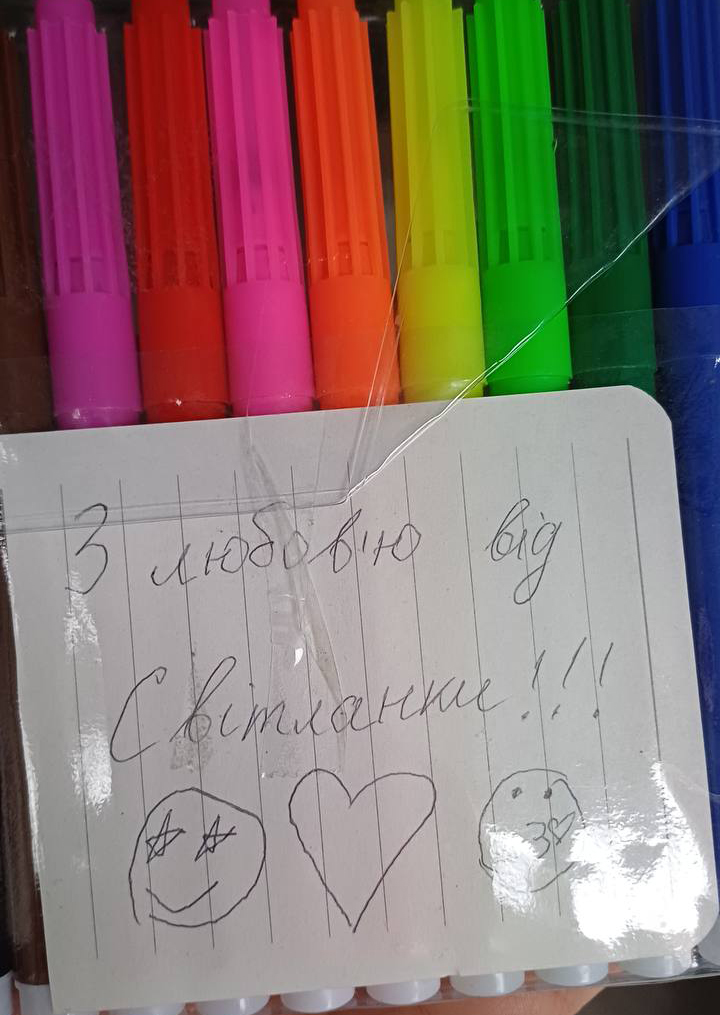 З любов'ю від
Світланки!!!